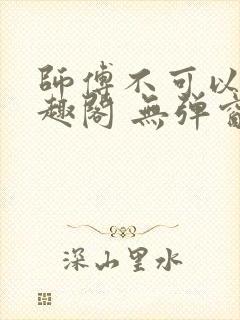 師傅不可以
趣閣 無彈窗
深山里水